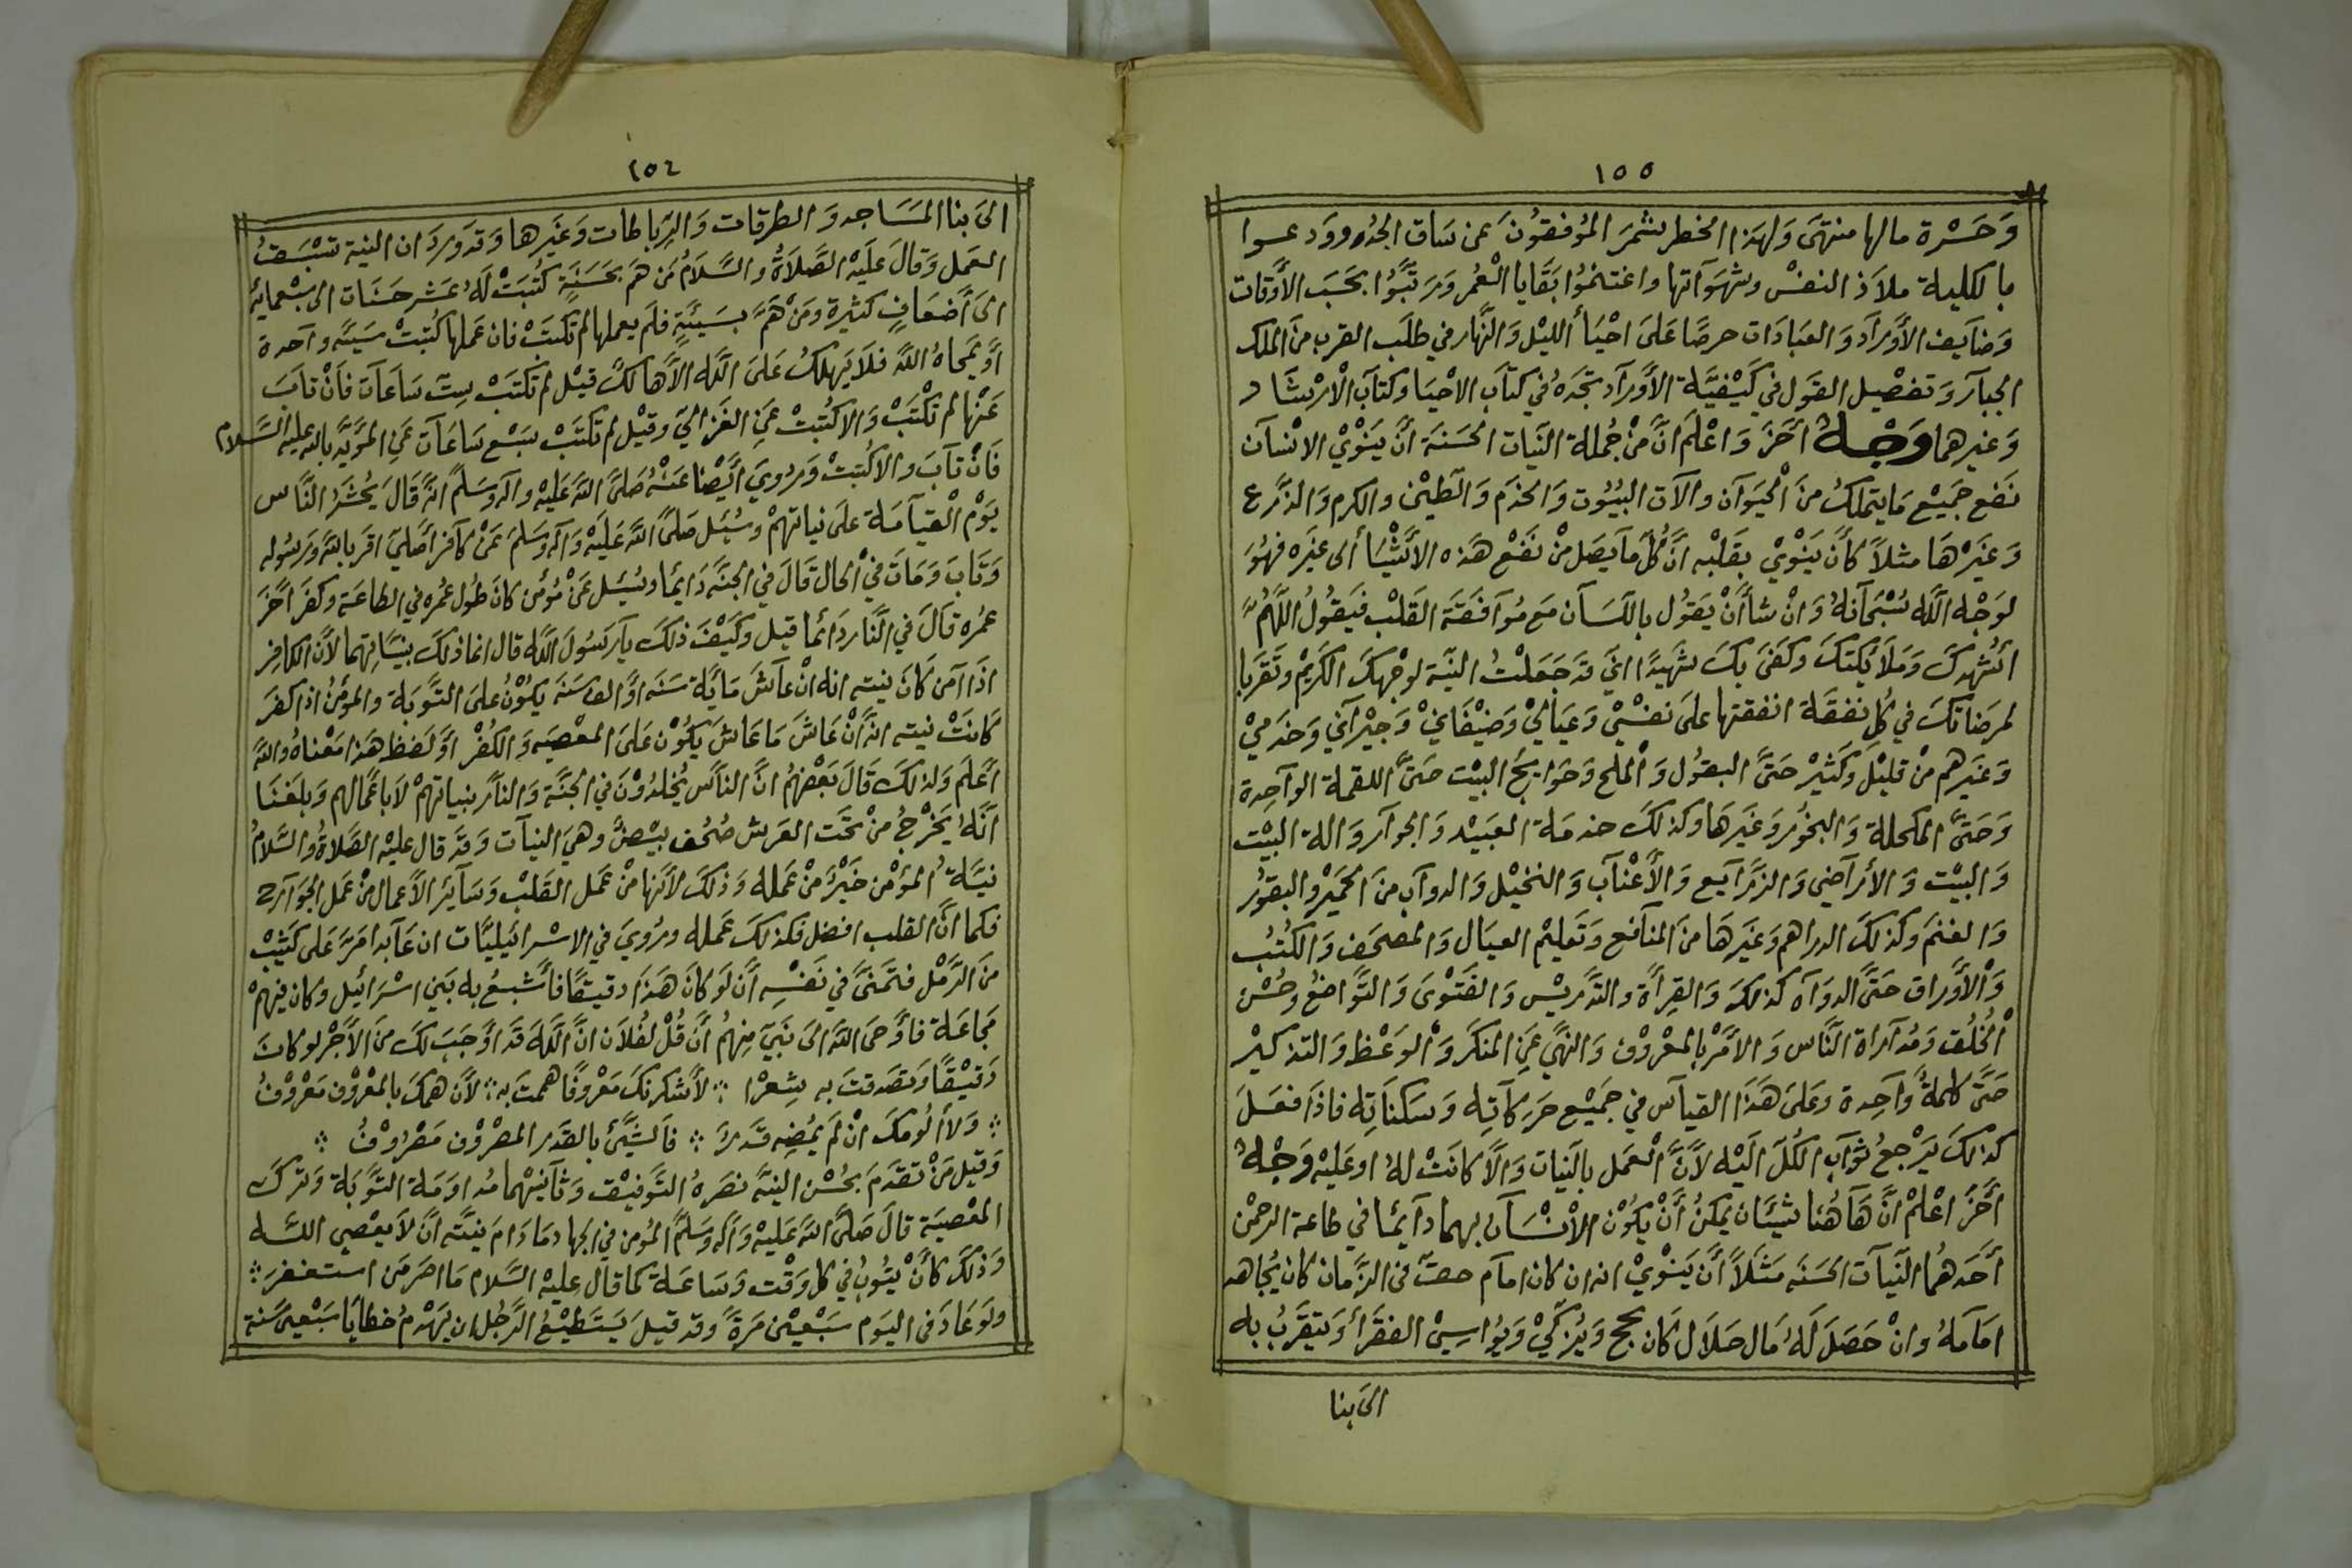 ١٥٥
وَحَسْرة مالها منتهَى وَلهذا الخطر شمرَ المُوُفقوُنَ عَن سَاق الجدُ وودعوا
بالكلية ملاَذ النفسْ وشهَوَآتها واغتنموُا بَقَايا العُمُر وَرَتَّبوُا بحَسَب الأَوقات
وَضآيف الأَورآد وَالعبادَات حرصًا عَلىَ احْيَأ الليْل وَالنَّهار في طلَب القرب منَ الملك
الجبآر وَتفصْيل القوَل في كَيْفيَّة الأَورآد تجَدهُ في كتآب الاحْيَا وكتآب الاْرشَاد
وَغيرهما وَجْهٌ أخَرَ وَاعْلمَ انَّ منْ جُملة النيَات الحسَنة أنَّ يَنَوْيْ الانْسآن
نفع جَميْع مَا يتملكُ منَ الحْيَوآن والآت البيُوُت وَالخدَم وَالطينْ والكرم وَالذرع
وَغَيَرْهَا مثلاً كأنَّ يَنَوْيْ بقَلبْه أنَّ كُل مآيصَل منْ نَفَعْ هَذه الأَشْيَأ الى غيَره فهُوَ
لوَجْه اللَّه سُبْحَآنهُ وَانْ شاأَنْ يَقوُل باللسَآن مَع مُوآفَقَة القَلبْ فيَقوُلُ اللَّهُمَّ
اشُهدكَ وَمَلأيَكتكَ وكفىَ بكَ شهَيدًا انيَ قدَ جَعَلتْ النيَّة لوَجْهكَ الكَريْم وتَقَربا
لمرضَاتكَ في كُلِ نفقَة انفقتها علىَ نفسْيْ وَعيَاليْ وَضيْفَانيْ وَجيْرآني وَخدَميْ
وَغيَرهم منْ قليْل وَكَثيْر حَتىَّ البقوُل وَالملح وَحَوايجُ البَيْت حَتىَّ اللقمة الوآحِدة
وَحَتىَّ المكحلة وَالبخوُر وَغيَرهَا وكذلكَ خدمَة العبَيْد وَالجوآر وَالة البيْت
وَالبيْت وَالأَرآضي وَالزرَآيع وَالأَعْنآب وَالنخيْل وَالدوآب منَ الحمَيرْ والبقوُر
وَالغنمَ وكذلكَ الدراهم وَغيَرهَا منَ المنآفع وَتَعليْم العيَال وَالمصحَف وَالكُتُب
وَالأَوراق حَتىَّ الدوَاه كذلكَ وَالقِرأة والتدَريْس وَالفَتْوىَ وَالتَّواضُع وحُسْن
الخُلُق وَمُدآرآة النَّاس وَالأَمْر بالمعْروْف وَالنهَّي عَنِ المنكَر وَالوَعْظ وَالتذكيْر
حَتىَّ كلمةً وَآحِدة وَعَلىَ هَذَا القيآس في جَميْع حَرَكآتِه وَسَكنآتِه فاذَا فعَلَ
كذلكَ يَرْجعُ ثوآب الكُلّ اليْه لأَنَّ العَمل بالنيات وَالأ كانَتْ لهُ او عَليْه وَجْهٌ
أخَرَ اعْلمْ انَّ هَآهُنا شيئَان يمكنُ أَنْ يكوُنْ الاْنْسَآن بهما دآيمًا في طاعة الرحمْن
أَحَدهُما النيآت الحسَنة مَثَلاً أَنَّ يَنوْيْ انه ان كان امآم حقّ فى الزَّمان كان يُجاهد
امَامَهُ وانْ حَصَلَ لَهُ مَال حَلاَل كان يحج وَيُزكيْ وَيُواسيْ الفقَرأ وَيتقَرَّبُ به
الىَ بنا
١٥٤
الىَ بنا المَسَاجد وَالطرقات وَالرِّباطات وَغيَرها وَقدَ وَرَدَ ان النية تسْبَقُ
العمَل وَقالَ عَليَه الصَّلاَةُ والسَّلاَمُ مَن هَمَ بحَسَنَةٍ كتُبَتْ لَهُ عَشر حَسَنات الى سَبْعمايَة
الىَ أَضعَافٍ كثيرة ومَنْ هَمَّ بسَيئَةٍ فلَم يعملها لم تكتَبْ فان عَملها كُتبتْ سَيئَة وآحدة
أَو يمَحاهُ اللَّه فلاَ يَهلكُ عَلىَ اللَّه الاَّ هَالكٌ قيْل لم تكتَبْ ستّ سَاعَآت فآنْ تآبَ
عَنْها لم تكتَبْ وَالا كُتبتْ عَنِ الغزاليّ وقيْل لم تكتَبْ سَبْع سَاعَآت عَنِ المؤَيَّد بالله عليه السَّلام
فَانْ تآبَ والا كُتبتْ وَرُويَ أيَضًا عَنْهُ صَلىَّ اللَّه عَليَه وآله وسَلمَّ انَّهُ قَالَ يُحْشَرُ النَّاس
يوَمْ القيآمَة علىَ نياتهمْ وسُئَل صَلىَّ اللَّه عَليَه وَآله وَسَلمَ عَنْ كآفر أَصْليّ اقرَ باللَّه ورَسُوله
وَتَابَ وَمَاتَ في الحال قَالَ في الجنَّة دَايمًا وسُئَل عَنْ مُؤمن كانَ طُول عُمُره في الطاعَة وكفرَ اخَرَ
عمُره قالَ في النَّار دَائما قيل وكيَفَ ذلكَ يآرَسُولَ اللَّه قال انما ذلكَ بنيَّاتهما لأَنَّ الكافِر
اذَا آمن كانَ نيته انه انْ عآشَ مَايَة سَنة أَو الف سَنَة يكوُنُ علىَ التوَّبَة والمؤمنُ اذا كفرَ
كانَتْ نيته انهُ انْ عَاشَ مَا عَاشَ يكوُنْ علىَ المعْصَيه وَالكفُرْ أَو لَفظ هَذا مَعْناهُ واللَّه
أَعْلَم وَلذلكَ قَالَ بَعْضهُمُ انَّ النآَس يُخلدُوْنَ في الجنَّة وَالنآَر بنياتهمْ لأباعَمالهم وَبلغنَا
أَنَّهُ يَخْرْجُ منْ تحَت العَرش صُحُف بيْضٌ وهيَ النيآت وَقدَ قال عليْه الصَّلاةُ والسَّلامُ
نيَّةُ المؤمْن خَيْرٌ منْ عَمَله وَذلكَ لأَنهَا منْ عَمل القَلبْ وَسَآيرَ الأَعمال منْ عَمل الجوَآرح
فكما انَّ القلب افضل فكذلكَ عَمله ورُويَ في الاسْرائيليَّات ان عَآبدا مَرَّ عَلى كَثيْب
منَ الرَّمْل فتَمنىَّ في نَفسْه أَن لَو كانَ هَذَا دقيْقًا فأَشبعُ به بَني اسْرَائيل وكان فيهمْ
مجَاعَة فأَوحىَ اللَّه الىَ نبَيّ منِهمُ أَنَ قُلْ لفُلاَن انَّ اللَّه قَد أَوجَبَ لكَ منَ الأَجْر لو كانَ
دَقيْقًا وَتصَدقتَ به شِعْرا ؞ لأَشكرنكَ مَعْروُفًا هممتَ به ؞ لأَن همكَ بالمعْروُف مَعْروُفُ
؞ وَلاَ ألُومكَ انْ لَم يُمضِه قَدَرٌ ؞ فآلشيَّئ بالقدَر المصْروْف مَصْروُفْ ؞
وَقيل مَنْ تقدَمَ بحُسْن النيَّة نصَرهُ التوَّفيْق وَثآنيْهما مُداوَمَة التوَّبَة وَترْكَ
المعْصيَة قالَ صَلىَّ اللَّه عَليْه وَآله وَسَلمَّ المُؤمن في الجهاد مَا دَامَ نيَّته أَنَّ لاَ يعْصي اللَّه
وَذلكَ كأَنَّ يتوُبُ في كل وَقْت وَسَاعَة كما قآل عليْه السَّلام مَا اصَر مَن استغفرَ ؞
ولَو عَادَ فى اليَوم سَبْعيْن مَرَةً وَقد قيلَ يَسَتَطيْعُ الرَّجُل ان يَهْدمُ خطايَا سَبْعينَ سَنة